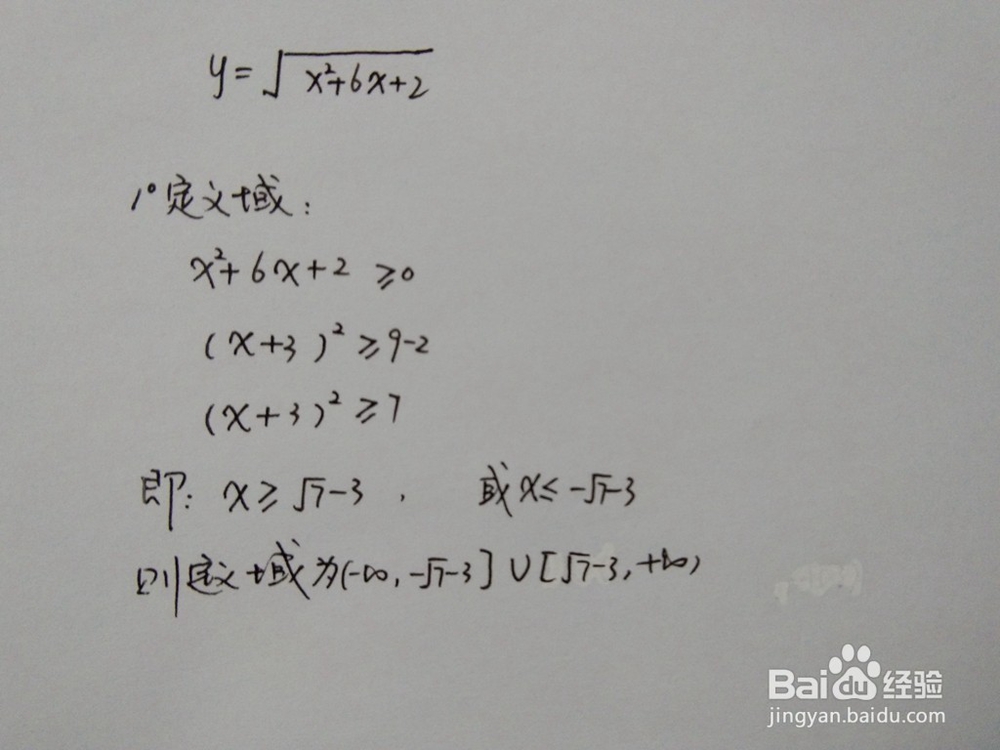 y=√x²+6x+2
1°定义域:
x²+6x+2 ≥0
(x+3)²≥9-2
(x+3)²≥7
即: x≥√7-3 , 或x≤-√7-3
则定义域为(-∞,-√7-3]∪[√7-3,+∞)
Baidu经验
jingyan.baidu.com